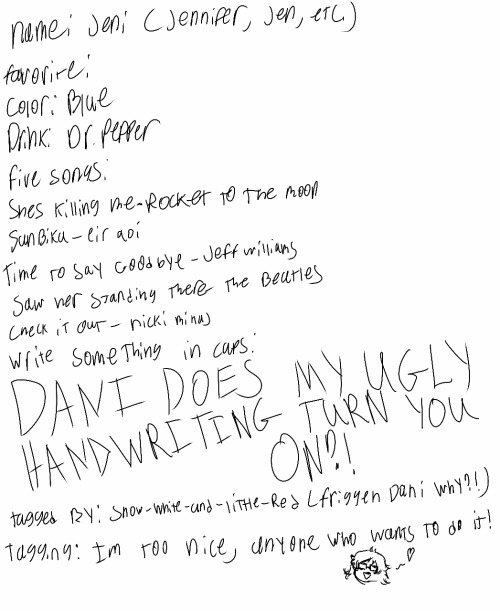 name: Jeni (Jennifer, Jen, etc.)
favorite:
Color: Blue
Drink: Dr. Pepper
five songs:
Shes Killing Me-Rocket To The moon
SanBiKa-eir aoi
Time To Say Goodbye-Jeff williams
Saw Her Standing There The Beatles
Check it out-nicki minaj
Write something in caps:
DANI DOES MY UGLY
HANDWRITING TURN YOU
ON?!
tagged By: Snow-White-and-little-Red (friggen Dani why?!)
Tagging: Im Too nice, anyone who wants To do it!